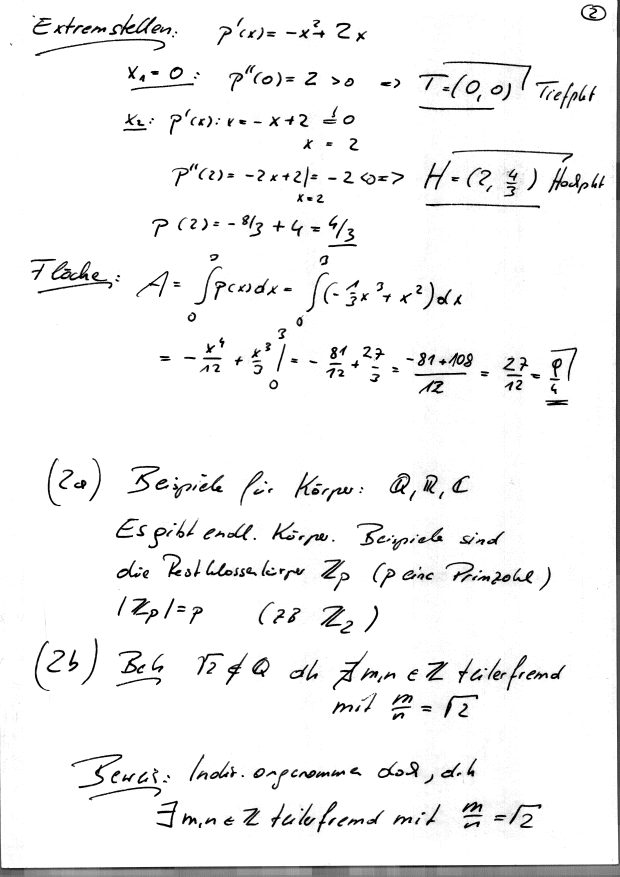 ②
Extremstellen: p'(x) = -x² + 2x
x₁ = 0: p''(0) = 2 > 0 => T = (0, 0) Tiefpkt
x₂: p'(x): x = -x + 2 =! 0
x = 2
p''(2) = -2x + 2|ₓ₌₂ = -2 < 0 => H = (2, 4/3) Hochpkt
p(2) = -8/3 + 4 = 4/3
Fläche: A = ∫₀³ p(x) dx = ∫₀³ (-1/3 x³ + x²) dx
= -x⁴/12 + x³/3 |₀³ = -81/12 + 27/3 = (-81 + 108)/12 = 27/12 = 9/4
(2a) Beispiele für Körper: ℚ, ℝ, ℂ
Es gibt endl. Körper. Beispiele sind
die Restklassenkörper ℤₚ (p eine Primzahl)
|ℤₚ| = p (zB ℤ₂)
(2b) Beh √2 ∉ ℚ dh ∄ m,n ∈ ℤ teilerfremd
mit m/n = √2
Beweis: Indir. angenommen doch, d.h
∃ m,n ∈ ℤ teilerfremd mit m/n = √2